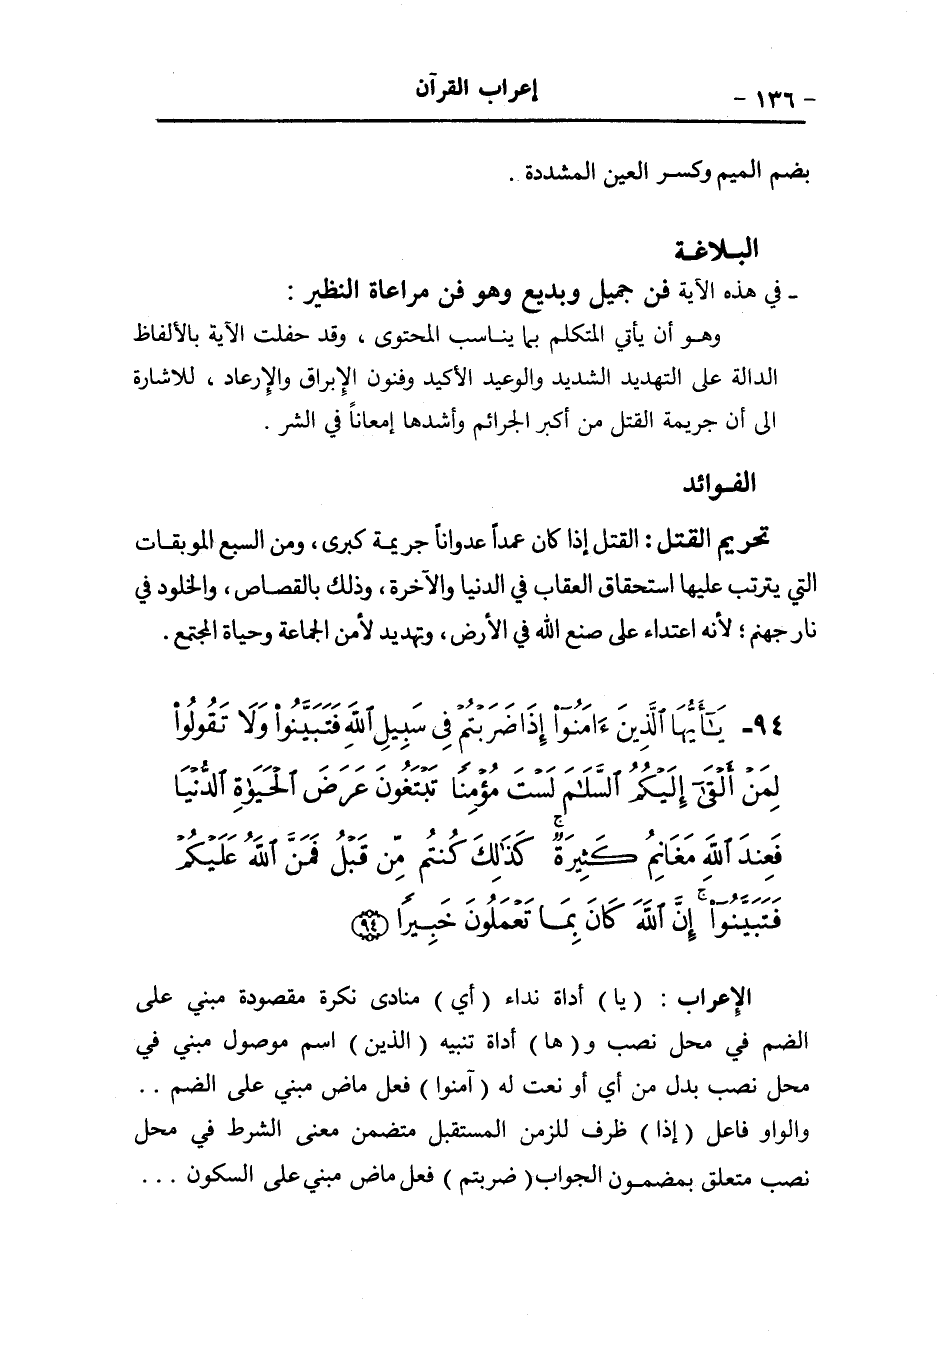 - ١٣٦ - إعراب القرآن
بضم الميم وكسر العين المشددة .
البلاغة
ـ في هذه الآية فن جميل وبديع وهو فن مراعاة النظير :
وهو أن يأتي المتكلم بما يناسب المحتوى ، وقد حفلت الآية بالألفاظ
الدالة على التهديد الشديد والوعيد الأكيد وفنون الإبراق والإرعاد ، للاشارة
الى أن جريمة القتل من أكبر الجرائم وأشدها إمعاناً في الشر .
الفوائد
تحريم القتل : القتل إذا كان عمداً عدواناً جريمة كبرى ، ومن السبع الموبقات
التي يترتب عليها استحقاق العقاب في الدنيا والآخرة ، وذلك بالقصاص ، والخلود في
نار جهنم ؛ لأنه اعتداء على صنع الله في الأرض ، وتهديد لأمن الجماعة وحياة المجتمع .
٩٤- يَـٰٓأَيُّهَا ٱلَّذِينَ ءَامَنُوٓا۟ إِذَا ضَرَبْتُمْ فِى سَبِيلِ ٱللَّهِ فَتَبَيَّنُوا۟ وَلَا تَقُولُوا۟
لِمَنْ أَلْقَىٰٓ إِلَيْكُمُ ٱلسَّلَـٰمَ لَسْتَ مُؤْمِنًا تَبْتَغُونَ عَرَضَ ٱلْحَيَوٰةِ ٱلدُّنْيَا
فَعِندَ ٱللَّهِ مَغَانِمُ كَثِيرَةٌ ۚ كَذَٰلِكَ كُنتُم مِّن قَبْلُ فَمَنَّ ٱللَّهُ عَلَيْكُمْ
فَتَبَيَّنُوٓا۟ ۚ إِنَّ ٱللَّهَ كَانَ بِمَا تَعْمَلُونَ خَبِيرًا ﴿٩٤﴾
الإعراب : ( يا ) أداة نداء ( أي ) منادى نكرة مقصودة مبني على
الضم في محل نصب و ( ها ) أداة تنبيه ( الذين ) اسم موصول مبني في
محل نصب بدل من أي أو نعت له ( آمنوا ) فعل ماض مبني على الضم . .
والواو فاعل ( إذا ) ظرف للزمن المستقبل متضمن معنى الشرط في محل
نصب متعلق بمضمون الجواب ( ضربتم ) فعل ماض مبني على السكون . . .